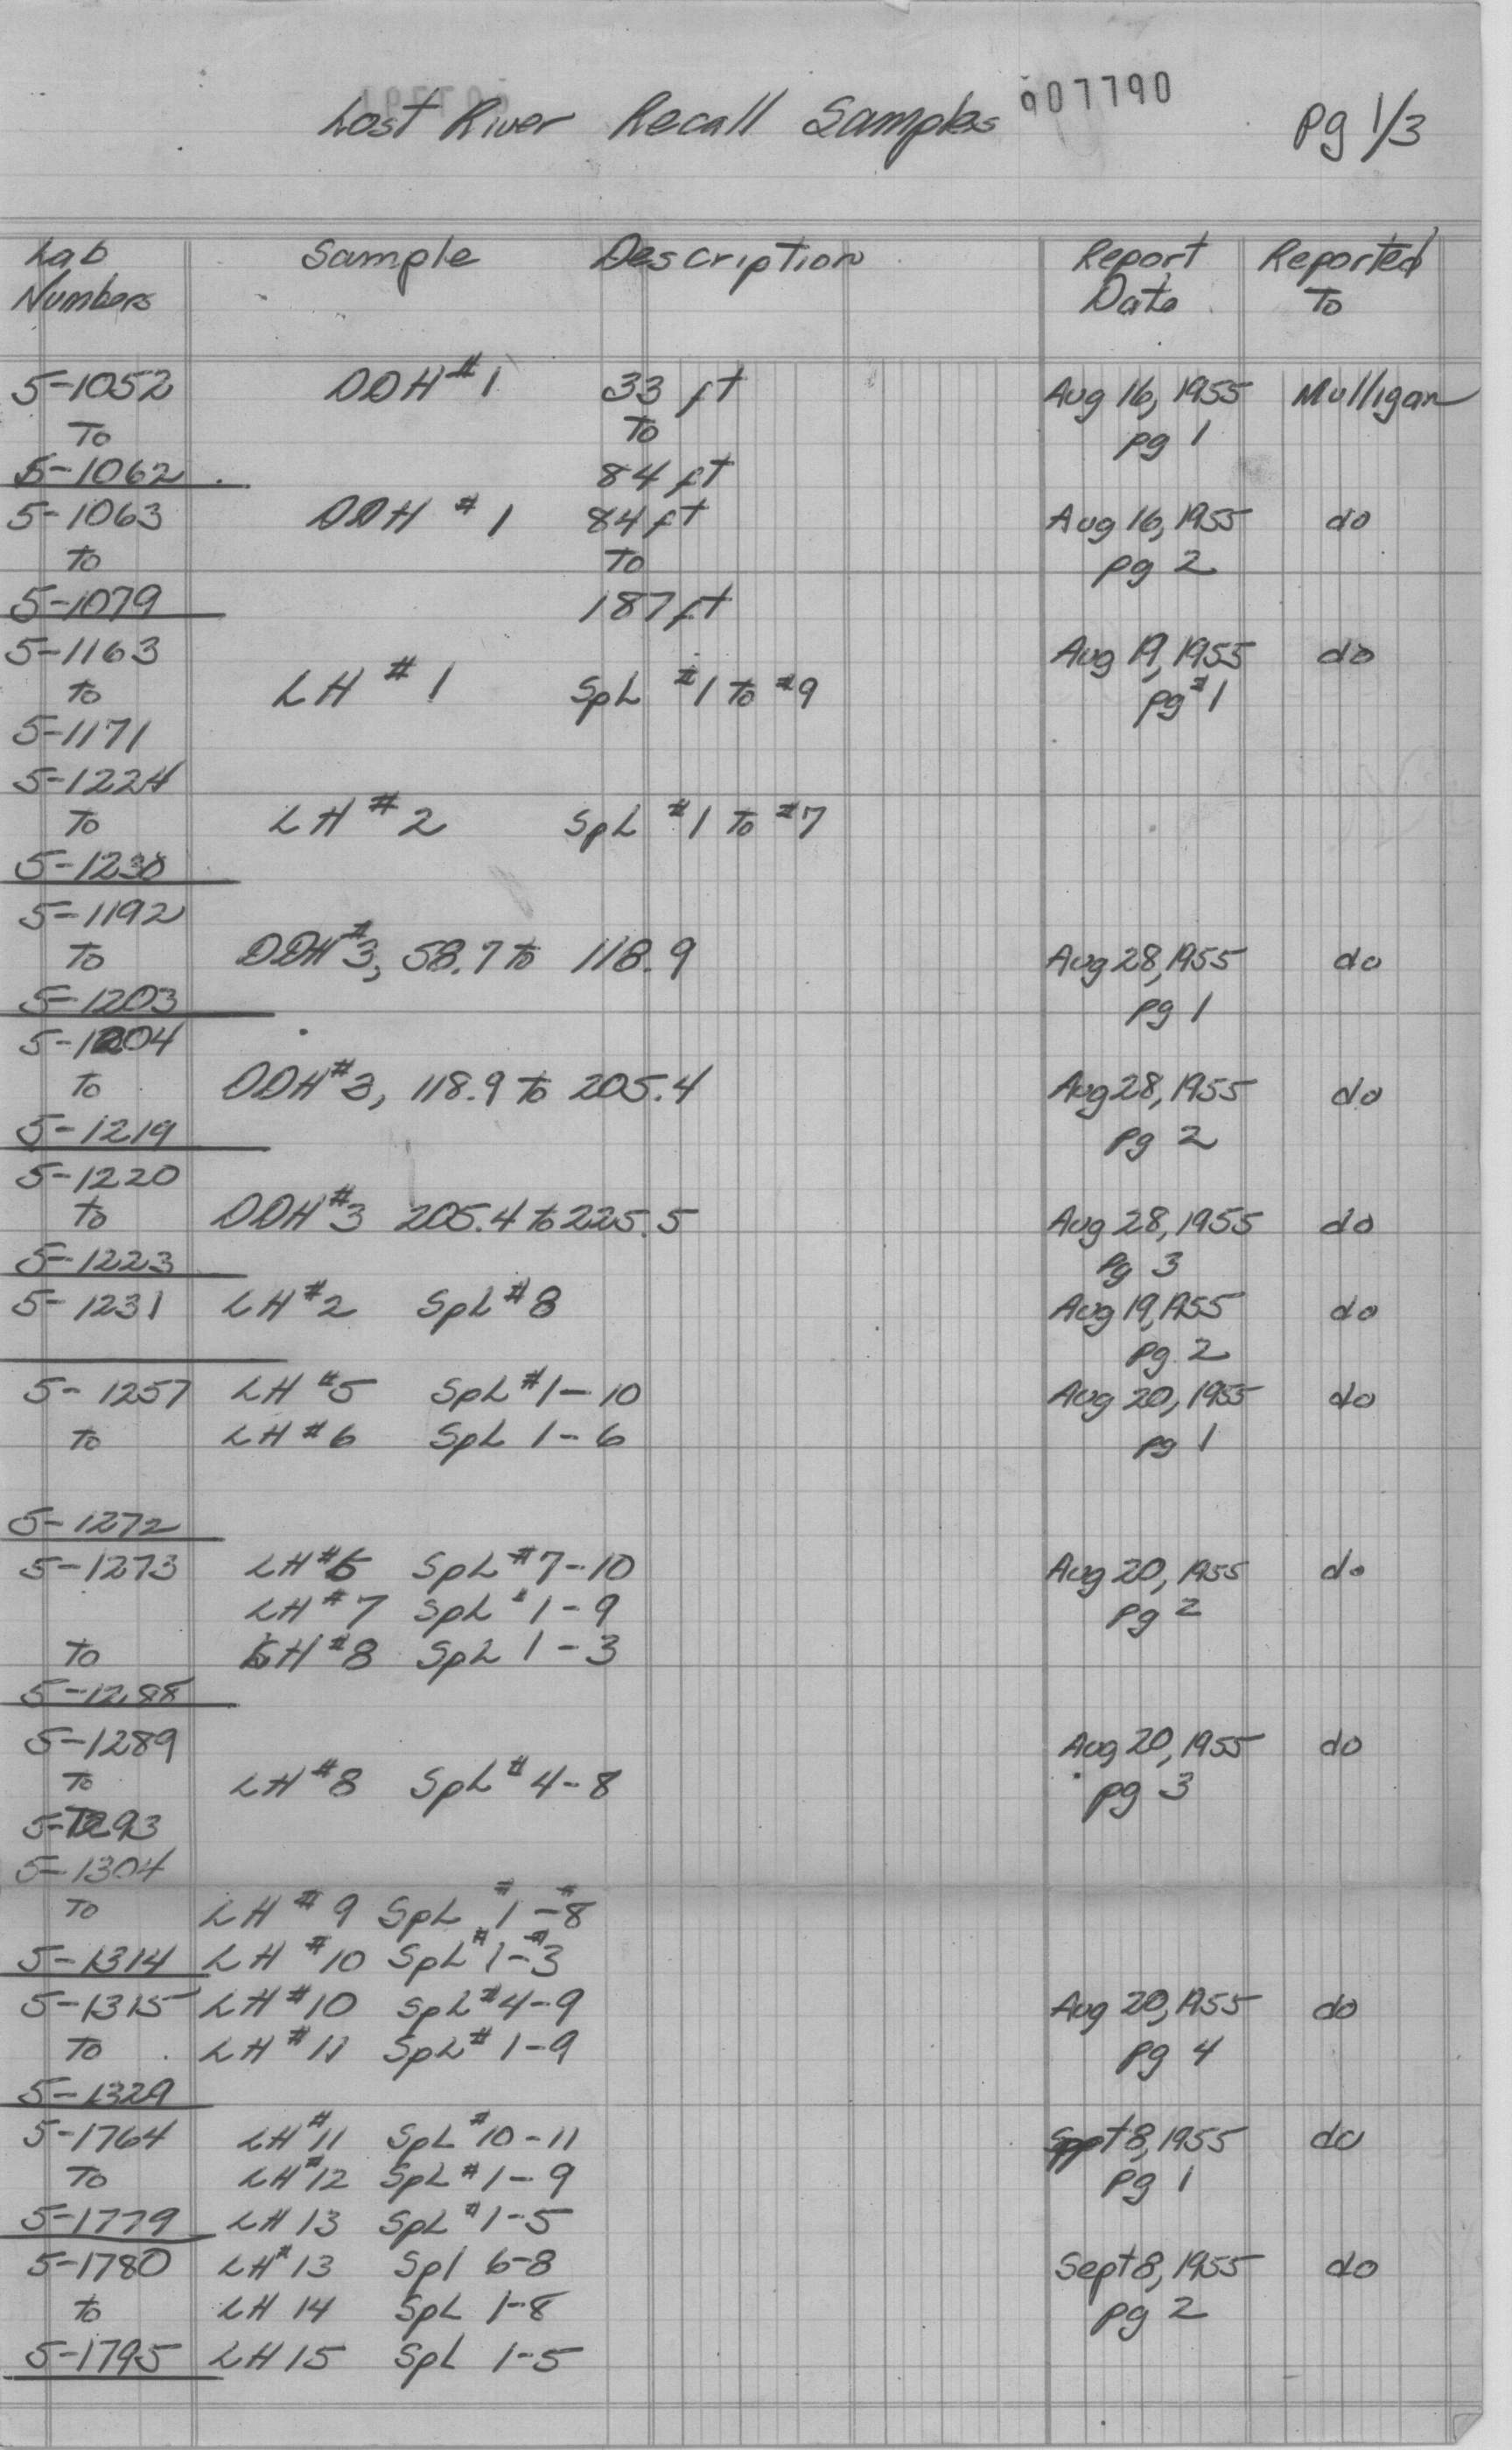 Lost River Recall Samples 007790 pg 1/3
Lab Numbers Sample Description Report Date Reported To
5-1052 DDH #1 33 ft Aug 16, 1955 Mulligan
To To pg 1
5-1062 84 ft
5-1063 DDH #1 84 ft Aug 16, 1955 do
To To pg 2
5-1079 187 ft
5-1163 Aug 19, 1955 do
to LH #1 SpL #1 To #9 pg #1
5-1171
5-1224
To LH #2 SpL #1 To #7
5-1230
5-1192
To DDH #3, 58.7 to 118.9 Aug 28, 1955 do
5-1203 pg 1
5-1204
to DDH #3, 118.9 to 205.4 Aug 28, 1955 do
5-1219 pg 2
5-1220
to DDH #3 205.4 to 225.5 Aug 28, 1955 do
5-1223 pg 3
5-1231 LH #2 SpL #8 Aug 19, 1955 do
pg 2
5-1257 LH #5 SpL #1-10 Aug 20, 1955 do
to LH #6 SpL 1-6 pg 1
5-1272
5-1273 LH #6 SpL #7-10 Aug 20, 1955 do
LH #7 SpL #1-9 pg 2
To LH #8 SpL 1-3
5-1288
5-1289 Aug 20, 1955 do
To LH #8 SpL #4-8 pg 3
5-1293
5-1304
To LH #9 SpL #1-#8
5-1314 LH #10 SpL #1-#3
5-1315 LH #10 SpL #4-9 Aug 20, 1955 do
To LH #11 SpL #1-9 pg 4
5-1329
5-1764 LH #11 SpL #10-11 Sept 8, 1955 do
To LH #12 SpL #1-9 pg 1
5-1779 LH 13 SpL #1-5
5-1780 LH #13 Spl 6-8 Sept 8, 1955 do
to LH 14 SpL 1-8 pg 2
5-1795 LH 15 SpL 1-5